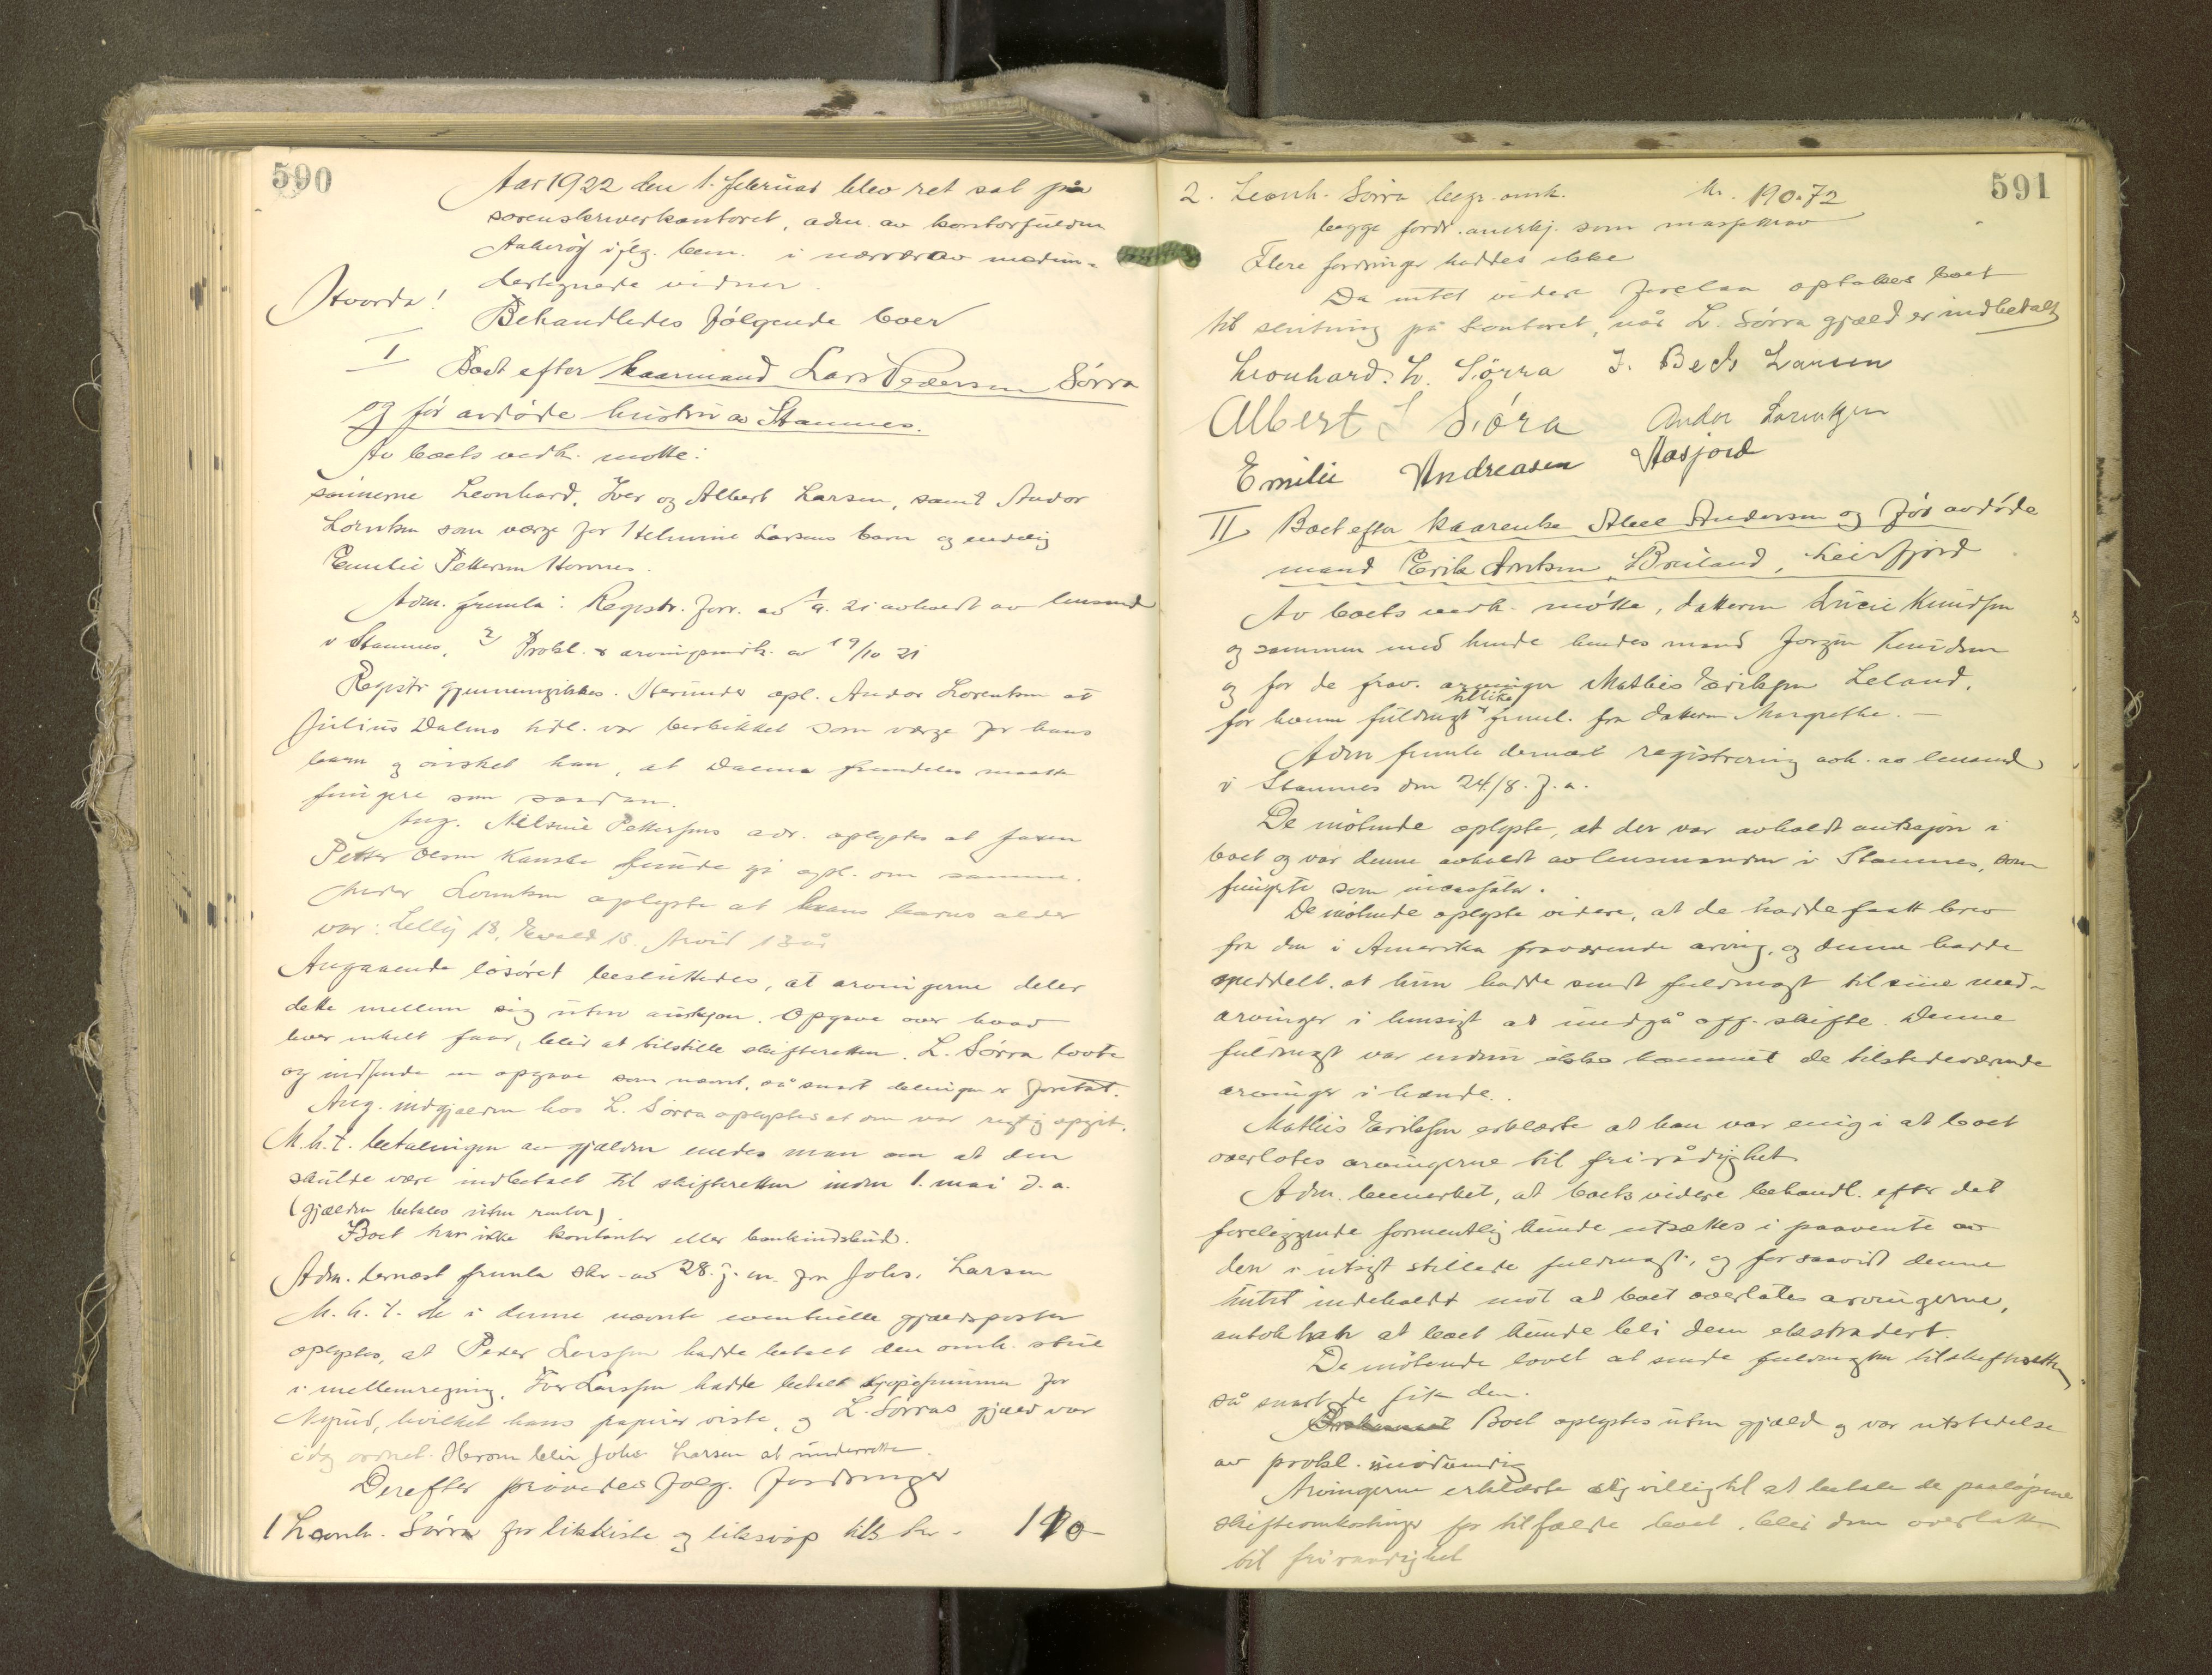 590
Aar 1922 den 1. februar blev ret sat på
sorenskriverkontoret, adm. av kontorfuldm
Aakerøy iflg. bem. i nærvær av medun-
dertegnede vidner.
Hvorda!
Behandledes følgende boer
I Boet efter kaarmand Lars Pedersen Sørra
og før avdøde hustru av Stamnes.
Av boets vedk. møtte:
sønnerne Leonhard, Iver og Albert Larsen, samt Andor
Lorntsen som værge for Helmine Larsens barn og endelig
Emilie Pettersen
Adm. fremla: Registr. forr. av 1/9. 21 avholdt av lensmand
i Stamnes, 2) Prokl. & arvingsindk. av 19/10 21
Registr gjennemgikkes. Herunder opl. Andor Lorentsen at
Julius Dalmo var beskikket som værge for hans
barn og ønsket han, at fremdeles maatte
fungere som saadan.
Ang. Nilsine Pettersens adr. oplystes at faren
Petter Olsen kanske kunde gi opl. om samme.
Lorntsen oplyste at hans barns alder
var: Lelly 18, Ewald 15. Arvid 13 år
Angaaende løsøret besluttedes, at arvingerne deler
dette mellem sig uten auksjon. Opgave over hvad
hver enkelt faar, blir at tilstille skifteretten. L. Sørra lovte
og indsende en opgave som nævnt, så snart delingen er foretat.
Ang. indgjælden hos L. Sørra oplystes at den var rigtig opgit.
M.h.t. betalingen av gjælden enedes man om at den
skulde være indbetalt til skifteretten inden 1. mai d.a.
(gjælden betales uten renter)
Boet har ikke kontanter eller bankindskud.
Adm. dernæst fremla skr. av 28. f.m. fra Johs. Larsen
M.h.t. de i denne nævnte eventuelle gjældsposter
oplystes, at Peder Larssen hadde betalt den omh. skul
i mellemregning. Iver Larssen hadde betalt kjøpesummen for
Nyrud, hvilket hans papirer viste, og L. Sørras gjæld var
idag ordnet. Herom blir Johs Larsen at underrette.
Derefter prøvedes følg. fordringer
1 Leonh. Sørra for likkiste og liksvøp tils kr. 110-
591
2. Leonh. Sørra begr. omk. kr. 190.72
begge fordr. anerkj. som massekrav
Flere fordringer haddes ikke
Da intet videre forelaa optokes boet
til slutning på kontoret, når L. Sørra gjæld er indbetalt
Leonhard. L. Sørra I. Beck Larsen
Albert L Sióra Andor Lorentzen
Emilie Andreasen Aasjord
II Boet efter kaarenke Andersen og før avdøde
mand Erik Arntsen, Breiland, Leirfjord
Av boets vedk. møtte, datteren Lucie Knudsen
og sammen med hende hendes mand Jørgen Knudsen
og for de frav. arvinger Mathis Eriksen Leland,
tillike
for hvem fuldmagt freml. fra datteren Margrethe. —
Adm fremla dernæst registrering avh. av lensmand
i Stamnes den 24/8. f.a.
De møtende oplyste, at der var avholdt auksjon i
boet og var denne avholdt av lensmanden i Stamnes, som
fungerte som incassator.
De møtende oplyste videre, at de hadde faatt brev
fra den i Amerika fraværende arving, og denne hadde
meddelt, at hun hadde sendt fuldmagt til sine med-
arvinger i hensigt at undgå off. skifte. Denne
fuldmagt var endnu ikke kommet de tilstedeværende
arvinger i hænde.
Mathis Eriksen erklærte at han var enig i at boet
overlotes arvingerne til fri rådighet
Adm. bemerket, at boets videre behandl. efter det
foreliggende formentlig kunde utsættes i paavente av
den i utsigt stillede fuldmagt, og forsaavidt denne
intet indeholdt mot at boet overlates arvingerne,
antok han at boet kunde bli dem ekstradert.
De møtende lovet at sende fuldmagten til skifteretten
så snart de fik den.
Boet oplystes uten gjæld og var utstedelse
av prokl. unødvendig
Arvingerne erklærte sig villig til at betale de paaløpne
skifteomkostninger for tilfælde boet blir dem overlatt
til fri raadighet